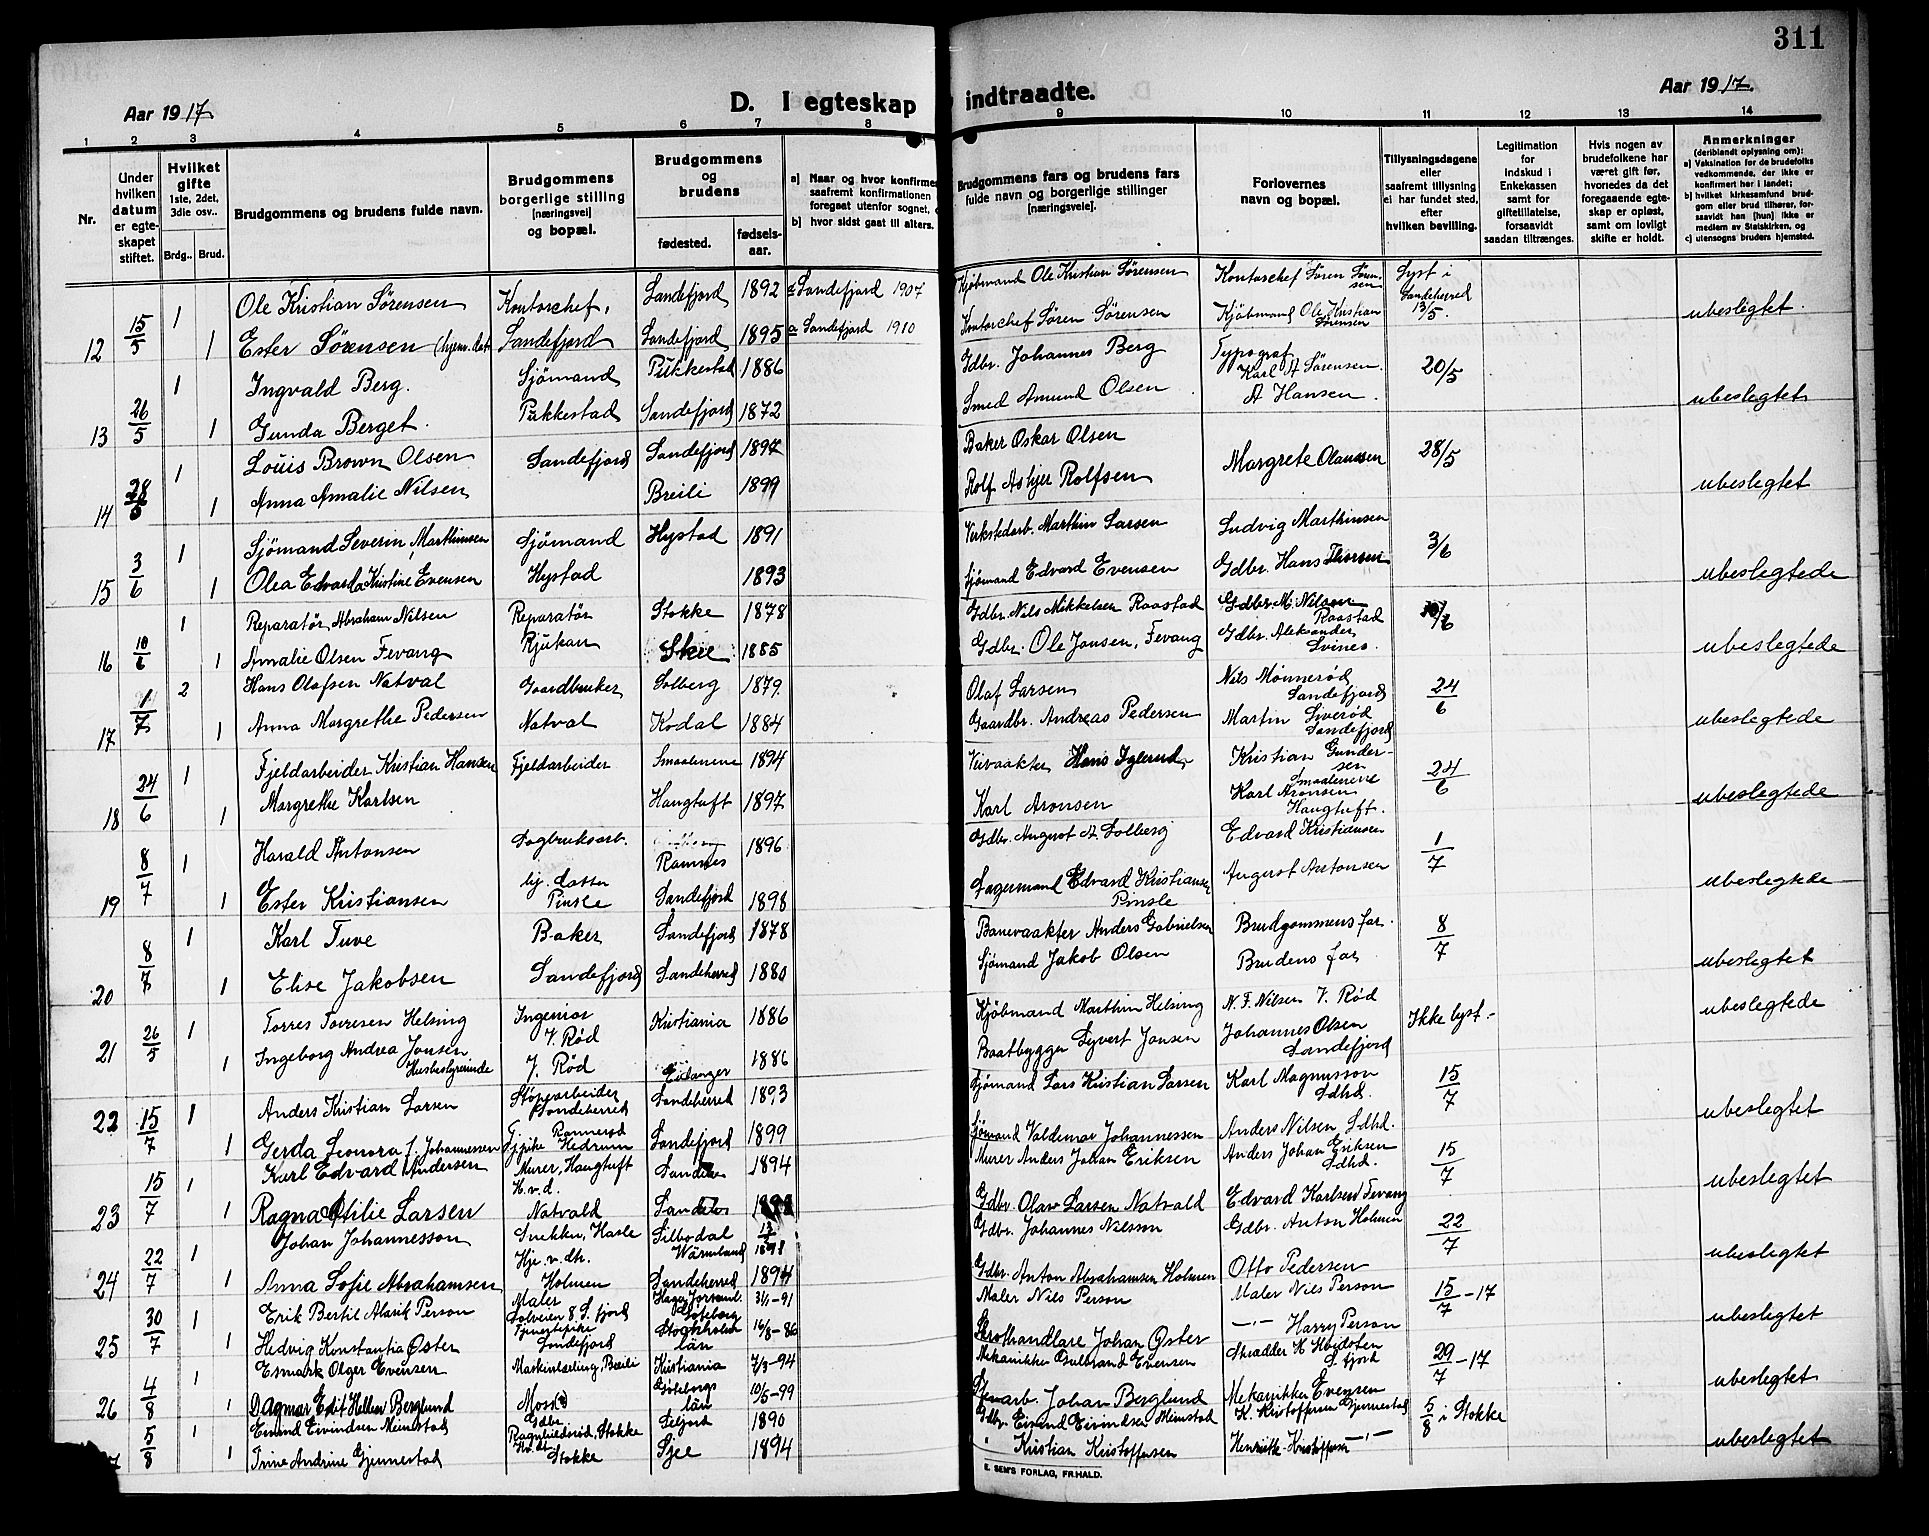 311
Aar 1917.
D. I egteskap indtraadte.
Aar 1917.
1 2 3 4 5 6 7 8 9 10 11 12 13 14
Nr.
Under hvilken datum er egteskapet stiftet.
Hvilket gifte 1ste, 2det, 3die osv..
Brdg.. Brud.
Brudgommens og brudens fulde navn.
Brudgommens borgerlige stilling [næringsvei] og bopæl.
Brudgommens og brudens
fødested.
fødsels-aar.
a) Naar og hvor konfirmer saafremt konfirmationen foregaat utenfor sognet,
b) hvor sidst gaat til alters.
Brudgommens fars og brudens fars fulde navn og borgerlige stillinger [næringsveie].
Forlovernes navn og bopæl.
Tillysningsdagene eller saafremt tillysning ei har fundet sted, efter hvilken bevilling.
Legitimation for indskud i Enkekassen samt for giftetillatelse, forsaavidt saadan tiltrænges.
Hvis nogen av brudefolkene har været gift før, hvoriedes da det foregaaende egteskap er opløst, samt om lovligt skifte er holdt.
Anmerkninger (deriblandt oplysning om): a) Vaksination for de brudefolks vedkommende, der ikke er konfirmert her i landet; b) hvilket kirkesamfund brudgom eller brud tilhører, forsaavidt han [hun] ikke er medlem av Statskirken, og c) utensogns bruders hjemsted.
12 15/5 1 Ole Kristian Sørensen Kontorchef, Sandefjord 1892 a Sandefjord 1907 Kjøbmand Ole Kristian Sørensen Kontorchef Søren Sørensen Lyst i Sandeherred 13/5. ubeslegtet.
1 Ester Sørensen (hjem. dat. Sandefjord Sandefjord 1895 a Sandefjord 1910 Kontorchef Søren Sørensen Kjöbmand Ole Kristian Sørensen
13 26/5 1 Ingvald Berg. Sjömand Pukkestad 1886 Gdbr. Johannes Berg Typograf Karl A Sørensen. 20/5 ubeslegtet
1 Gunda Berget. Pukkestad Sandefjord 1872 Smed Amund Olsen A Hansen.
14 28/5 1 Louis Brown Olsen Sandefjord Sandefjord 1897 Baker Oskar Olsen Margrete Olaussen 28/5 ubeslegtet
1 Anna Amalie Nilsen Breili 1899 Rolf Asbjer Rolfsen
15 3/6 1 Sjömand Severin Marthinsen Sjömand Hystad 1891 Verkstedarb. Marthin Larsen Ludvig Marthinsen 3/6 ubeslegtede
1 Olea Edvarda Kristine Evensen Hystad 1893 Sjömand Edvard Evensen Gdbr. Hans Thorsen
16 10/6 1 Reparatør Abraham Nilsen Reparatør Stokke 1878 Gdbr. Nils Mikkelsen Raastad Gdbr. M. Nilsen Raastad 10/6 ubeslegtede
1 Amalie Olsen Fevang Rjukan Skee 1885 Gdbr. Ole Jonsen, Fevang Gdbr. Aleksander Svines.
17 1/7 2 Hans Olafsen Natval Gaardbruker Solberg 1879 Olaf Larsen Nils Mønnerød Sandefjord 24/6 ubeslegtede
1 Anna Margrethe Pedersen Natval Kodal 1884 Gaardbr. Andreas Pedersen Martin Liverød Sandefjord
18 24/6 1 Fjeldarbeider Kristian Hansen Fjeldarbeider Smaalenene 1894 Veivaakter Hans Iglerud Kristian Gundersen Smaalenene 24/6 ubeslegtede
1 Margrethe Karlsen Haugtuft 1897 Karl Aronsen Karl Aronsen Haugtuft.
19 8/7 1 Harald Antonsen Sagbruksarb. Ramnes 1896 Gdbr. August A. Solberg Edvard Kristiansen 1/7 ubeslegtede
1 Ester Kristiansen hj. datter Pinsle Sandefjord 1898 Lagermand Edvard Kristiansen Pinsle August Antonsen
20 8/7 1 Karl Tuve Baker Sandefjord 1878 Banevaakter Anders Gabrielsen Brudgommens far. 8/7 ubeslegtet
1 Elise Jakobsen Sandefjord Sandeherred 1880 Sjømand Jakob Olsen Brudens far
21 26/5 1 Torres Torresen Helsing Ingeniør V. Rød Kristiania 1886 Kjøbmand Marthin Helsing N. F. Nilsen V. Rød Ikke lyst.- ubeslegtede
1 Ingeborg Andrea Jonsen Husbestyrerinde V. Rød Eidanger 1886 Baatbygger Syvert Jonsen Johannes Olsen Sandefjord
22 15/7 1 Anders Kristian Larsen Støperarbeider Sandeherred Sandeherred 1893 Sjømand Lars Kristian Larsen Karl Magnusson Sdhd. 15/7 ubeslegtet
1 Gerda Leonora f. Johannessen Hedrum Sandefjord 1899 Sjømand Valdemar Johannessen Anders Nilsen Sdhd.
23 15/7 1 Karl Edvard Andersen Murer, Haugtuft 1894 Murer Anders Johan Eriksen Anders Johan Eriksen Sdhd. 15/7 ubeslegtet
1 Ragna Otilie Larsen H.v.d. Natvald Gdbr. Olav Larsen Natvald Edvard Karlsen Fevang
24 22/7 1 Johan Johannesson Snekker, Hasle Silbodal Wärmland 1898 Gdbr. Johannes Nilsson Gdbr. Anton Holmen 22/7 ubeslegtet
1 Anna Sofie Abrahamsen Hje.v.dtr. Holmen Sandeherred 1894 Gdbr. Anton Abrahamsen Holmen Otto Pedersen
25 30/7 1 Erik Bertil Alarik Person Maler Solveien 8 S.fjord Göteborg 31/1-91 Maler Nils Person Maler Nils Person 15/7-17 ubeslegtet
1 Hedvig Konstantia Öster Tjenestepike Sandefjord Stockholms län 16/8-86 Skrothandlare Johan Öster -"- Harry Person
26 4/8 1 Esmark Olger Evensen Maskinlærling, Breili Kristiania 7/3-94 Mekanikker Evensen 29/7-17 ubeslegtet
1 Dagmar Edit Hellen Berglund Moss Göteborgs län 10/5-99 Johan Berglund Mekanikker Evensen
7 5/8 1 Eivind Eivindsen Meinstad Gdbr. Ragnhildsrød, Stokke Seljord 1890 Gdbr. Eivind Eivindsen Meinstad K. Kristoffersen Gjennestad 5/8 i Stokke ubeslegtet
1 Trine Andrine Gjennestad Stokke 1894 " Kristian Kristoffersen Henrette Kristoffersen -"-
E. SEM'S FORLAG, FR.HALD.